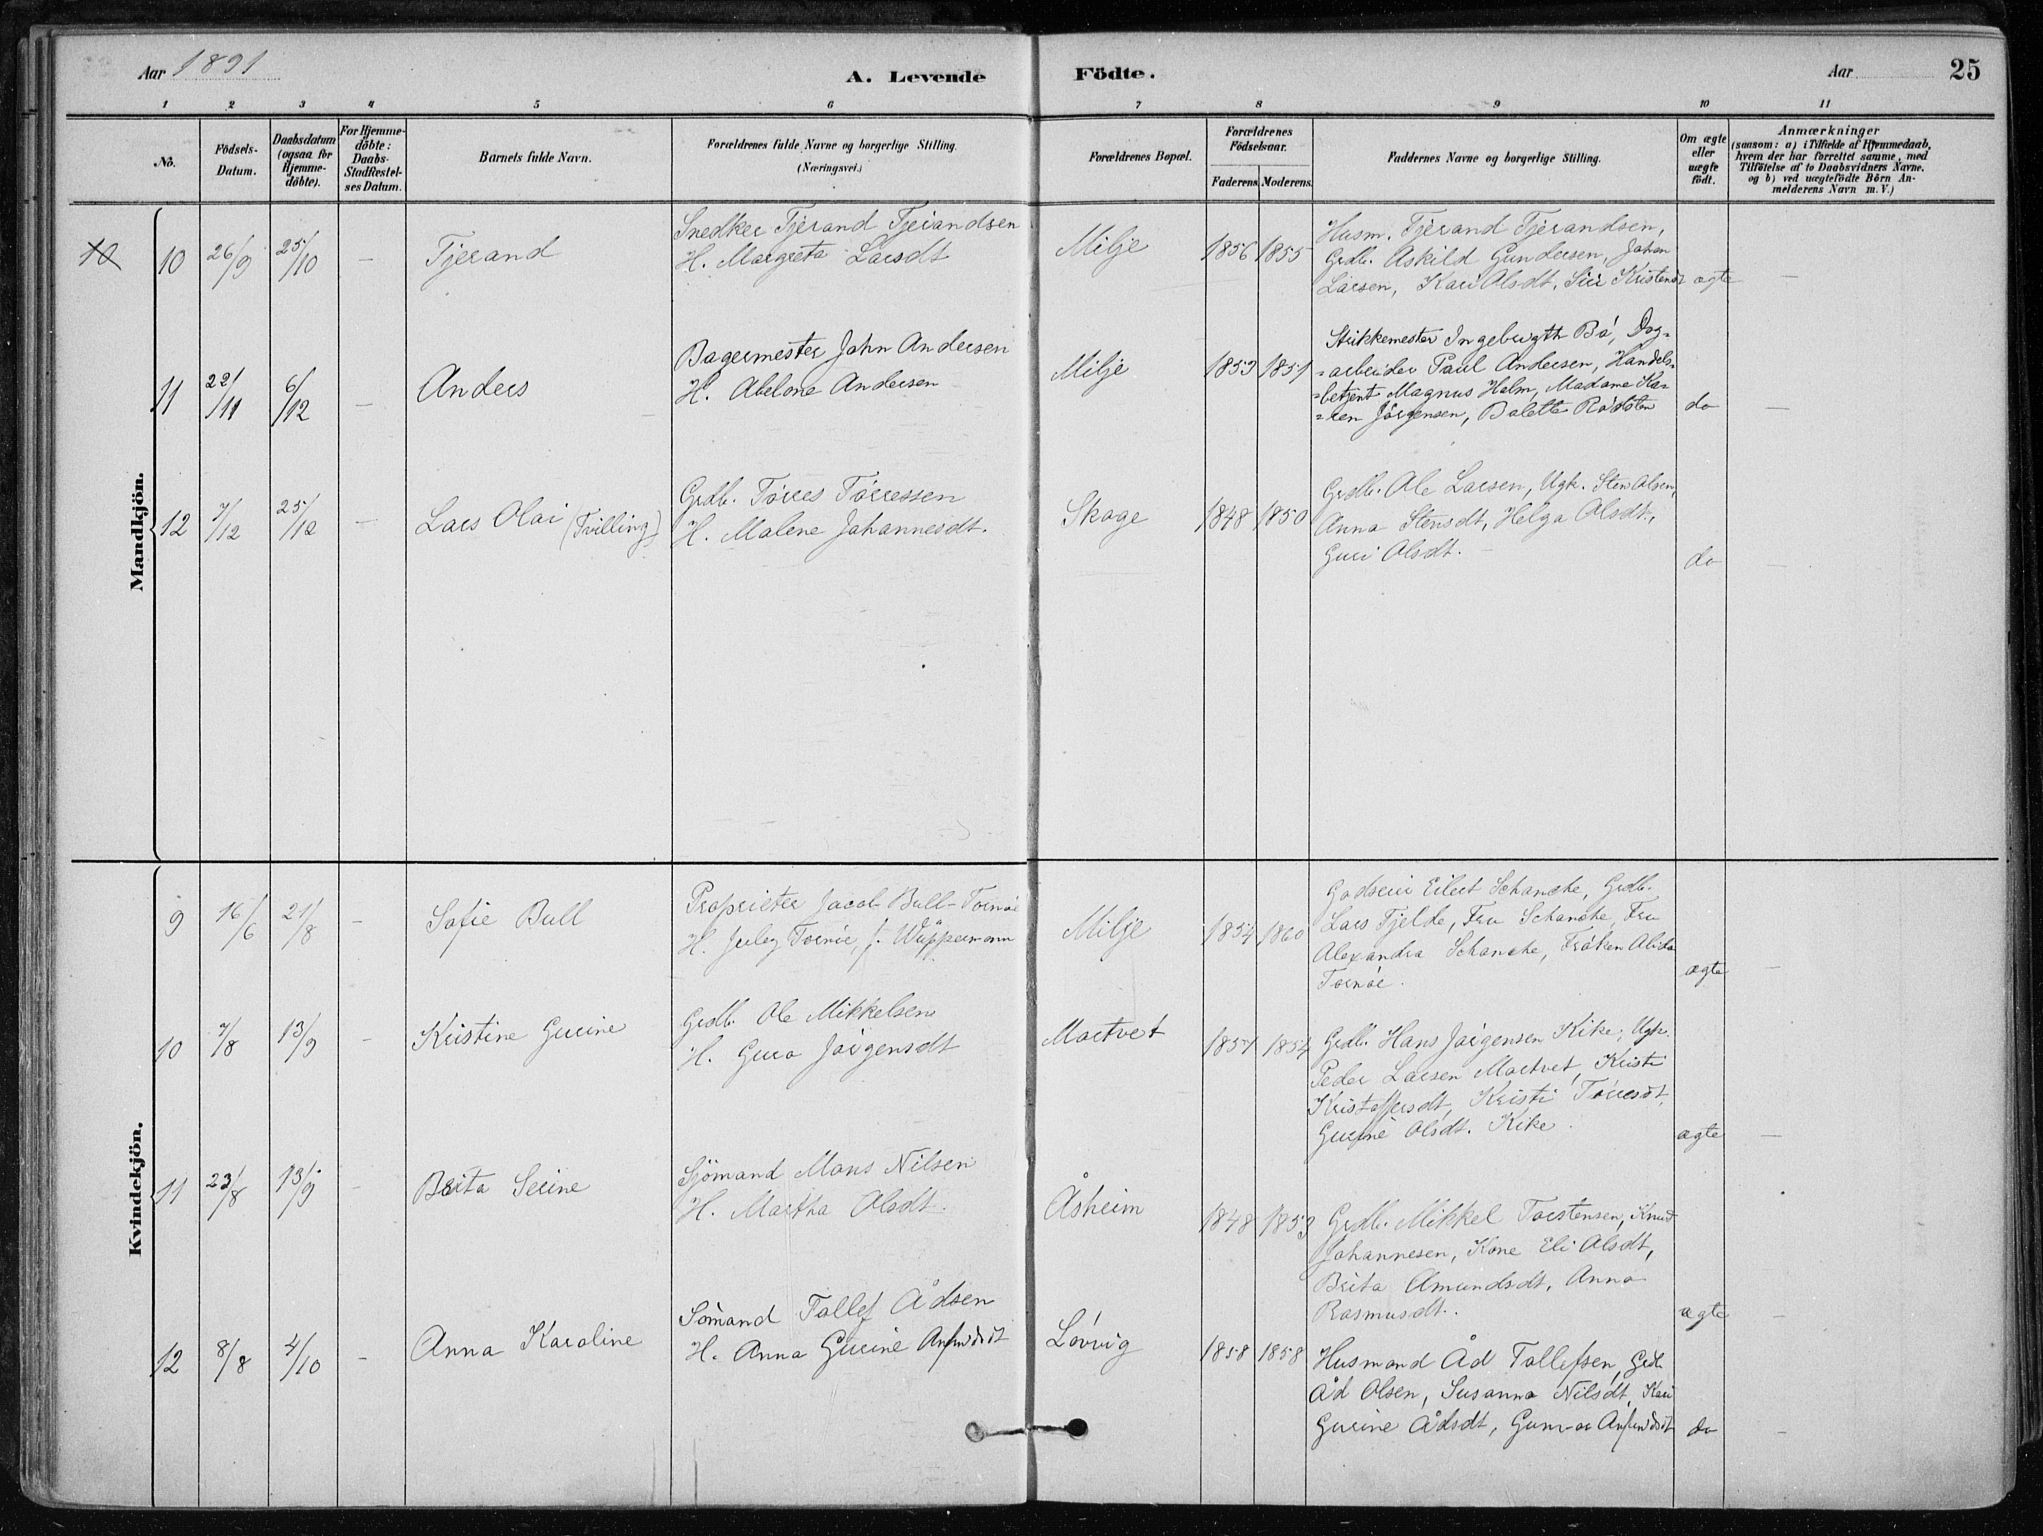 Aar 1891
A. Levende Födte.
Aar
25
1 2 3 4 5 6 7 8 9 10 11
No.
Födsels-Datum.
Daabsdatum (ogsaa for Hjemme-döbte).
For Hjemme-döbte: Daabs-Stadfæstel-ses Datum.
Barnets fulde Navn.
Forældrenes fulde Navne og borgerlige Stilling.
(Næringsvei.)
Forældrenes Bopæl.
Forældrenes Födselsaar.
Faderens. Moderens.
Faddernes Navne og borgerlige Stilling.
Om ægte eller uægte födt.
Anmærkninger
(saasom: a) i Tilfælde af Hjemmedaab,
hvem der har forrettet samme, med
Tilföielse af to Daabsvidners Navne.
og b) ved uægtefödte Börn An-
melderens Navn m. V.)
Mandkjön.
10
10 26/9 25/10 — Tjerand
Snedker Tjerand Tjerandsen
H. Margreta Larsdt
Milje 1856 1855
Husm. Tjerand Tjerandsen,
Grdb. Askild Gundersen, Johan
Larsen, Kari Olsdt, Siri Kristensdt
ægte —
11 22/11 6/12 — Anders
Bagermester John Andersen
H. Abelone Andersen
Milje 1853 1851
Strikkemester Ingebrigth Bö, Dag-
=arbeider Paul Andersen, Handels-
=betjent Magnus Holm, Madame Ka-
=ren Jörgensen, Bolette Rödsten
do —
12 7/12 25/12 — Lars Olai (Tvilling)
Grdb. Törres Törressen
H. Malene Johannesdt.
Skage 1848 1850
Grdb. Ole Larsen, Ugk. Sten Olsen,
Anna Stensdt, Helga Olsdt.,
Guri Olsdt. —
do —
Kvindekjön.
9 16/6 21/8 — Sofie Bull
Proprietær Jacob Bull-Tornöe
H. Juley Tornöe, f. Wüppermann
Milje 1854 1860
Godseier Eilert Schanche, Grdb.
Lars Tjelde, Fru Schanche, Fru
Alexandra Schanche, Fröken Alida
Tornöe.
ægte —
10 7/8 13/9 — Kristine Gurine
Grdb. Ole Mikkelsen
H. Guro Jörgensdt
Martvet 1851 1854
Grdb. Hans Jörgensen Kike, Ugk.
Peder Larsen Martvet, Kristi
Kristoffersdt, Kristi Törresdt,
Gurine Olsdt. Kike.
ægte —
11 23/8 13/9 — Brita Serine
Sjömand Mons Nilsen
H. Martha Olsdt.
Åsheim 1848 1853
Grdb. Mikkel Torstensen, Knud
Johannesen, Kone Eli Olsdt,
Brita Amundsdt, Anna
Rasmusdt.
ægte —
12 8/8 4/10 — Anna Karoline
Sömand Tollef Ådsen
H. Anna Gurine Anfindsdt
Lövvig 1858 1858
Husmand Åd Tollefsen, Grdb.
Åd Olsen, Susanna Nilsdt, Kari
Gurine Ådsdt, Gunvor Anfindsdt
do —